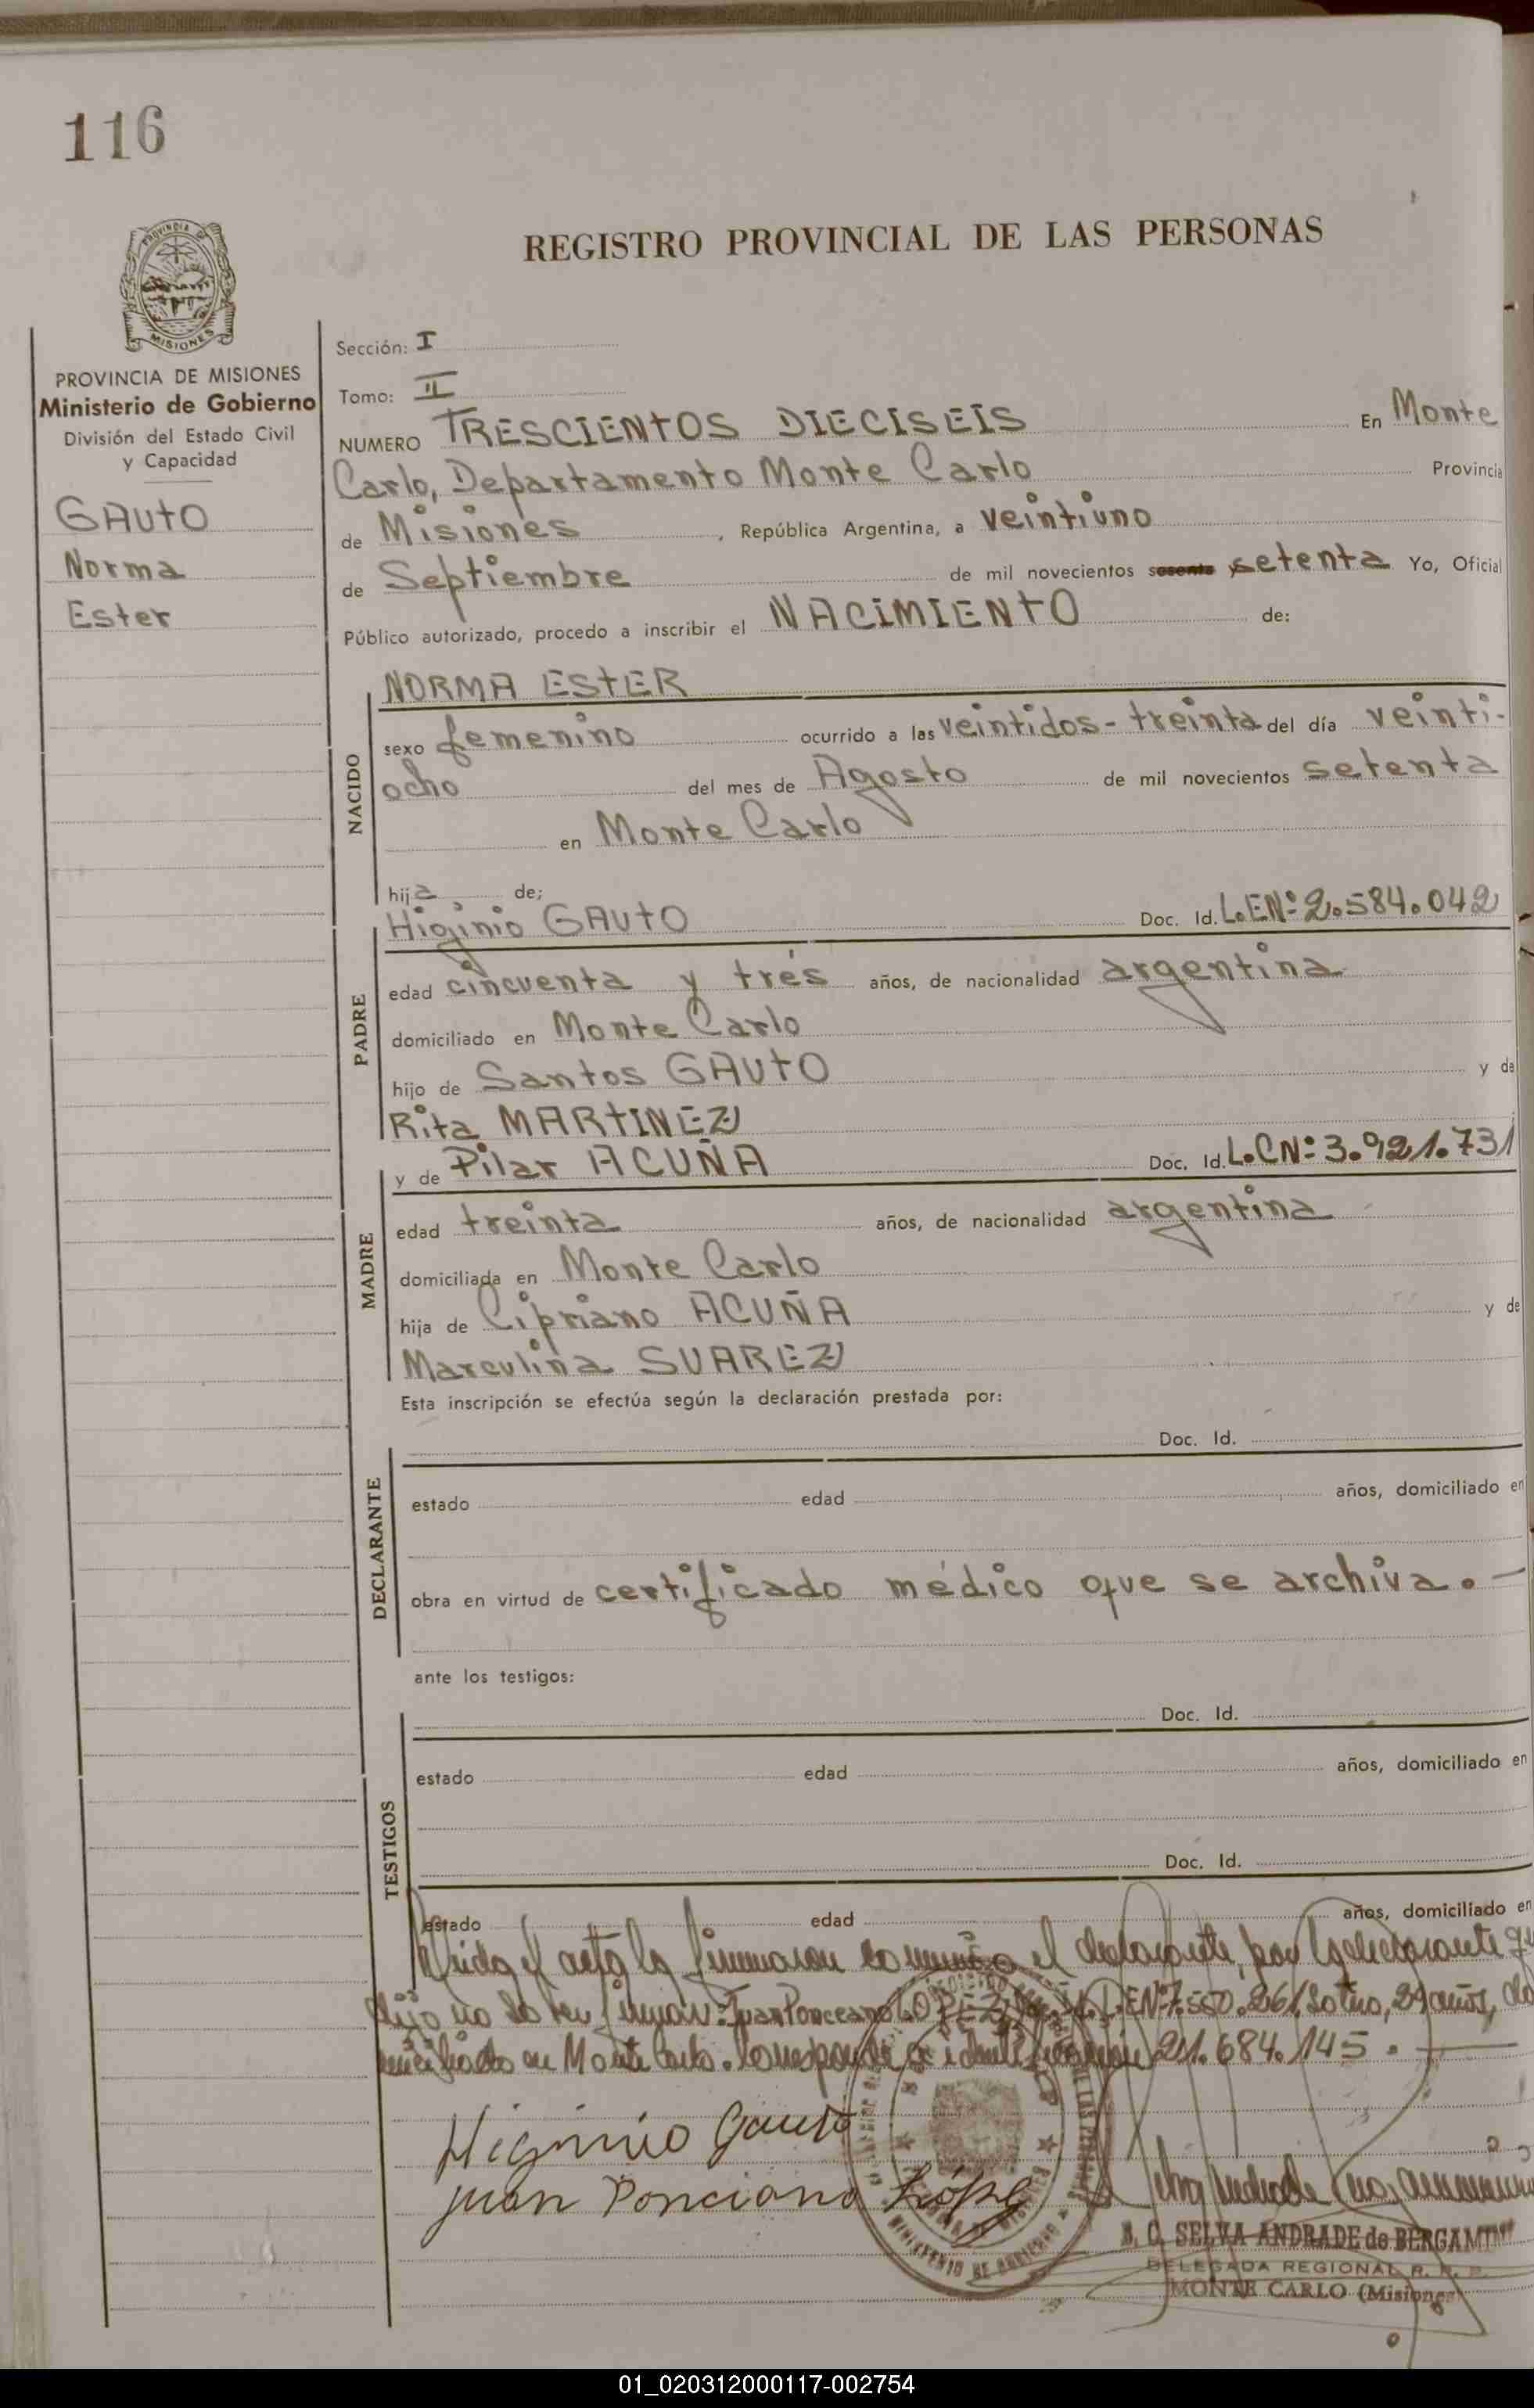 116
REGISTRO PROVINCIAL DE LAS PERSONAS
PROVINCIA DE MISIONES
PROVINCIA DE MISIONES
Ministerio de Gobierno
División del Estado Civil
y Capacidad
GAUTO
Norma
Ester
Sección: I
Tomo: II
NUMERO TRESCIENTOS DIECISEIS En Monte
Carlo, Departamento Monte Carlo Provincia
de Misiones, República Argentina, a veintiuno
de Septiembre de mil novecientos sesenta y setenta Yo, Oficial
Público autorizado, procedo a inscribir el NACIMIENTO de:
NACIDO
NORMA ESTER
sexo femenino ocurrido a las veintidos-treinta del día veinti-
ocho del mes de Agosto de mil novecientos setenta
en Monte Carlo
hija de;
PADRE
Higinio GAUTO Doc. Id. L.EN:2.584.042
edad cincuenta y trés años, de nacionalidad argentina
domiciliado en Monte Carlo
hijo de Santos GAUTO y de
Rita MARTINEZ
MADRE
y de Pilar ACUÑA Doc. Id. L.CN:3.921.731
edad treinta años, de nacionalidad argentina
domiciliada en Monte Carlo
hija de Cipriano ACUÑA y de
Marculina SUAREZ
Esta inscripción se efectúa según la declaración prestada por:
DECLARANTE
Doc. Id.
estado edad años, domiciliado en
obra en virtud de certificado médico que se archiva.-
ante los testigos:
TESTIGOS
Doc. Id.
estado edad años, domiciliado en
Doc. Id.
estado edad años, domiciliado en
el acta la firmaron conmigo el declarante, por la declarante que
dijo no saber firmar: Juan Ponceano LOPEZ, 7.550.261, soltero, 29 años, do
miciliado en Monte Carlo. Corresponde a identificación 21.684.145.
Higinio Gauto
Juan Ponciano López
MINISTERIO DE GOBIERNO
B. C. SELVA ANDRADE de BERGAMINI
DELEGADA REGIONAL R. P. P.
MONTE CARLO (Misiones)
01_020312000117-002754